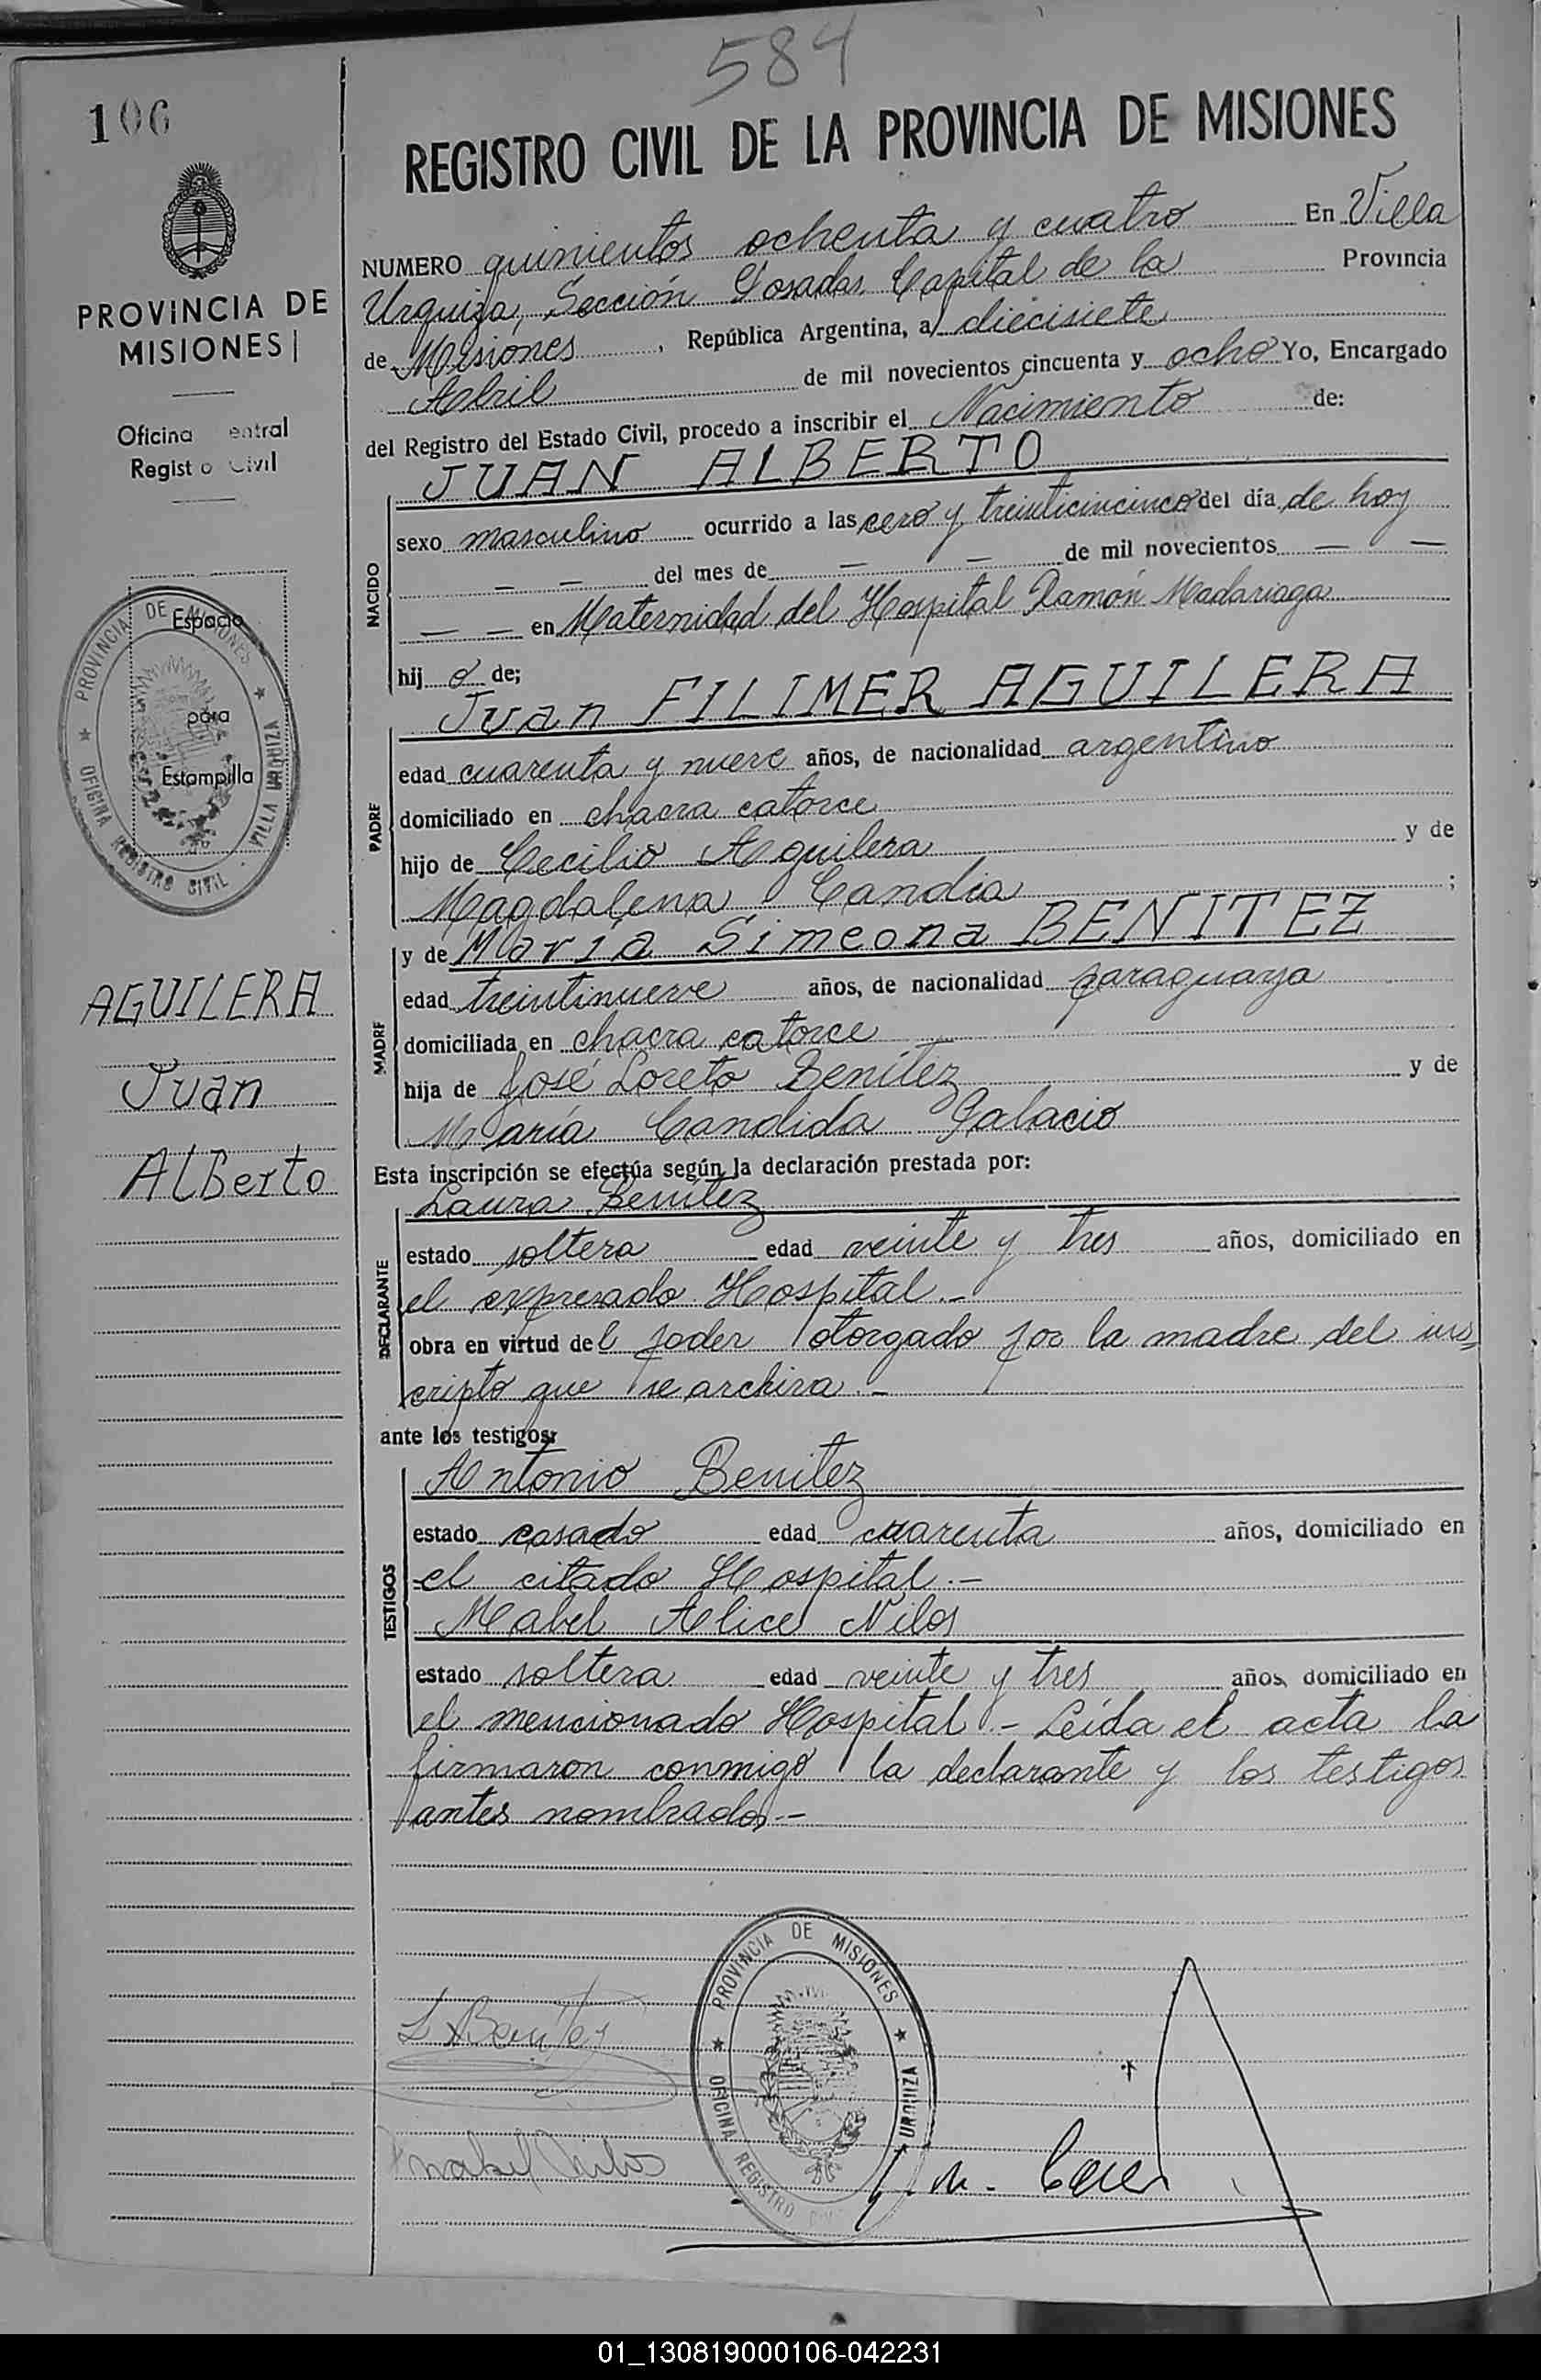 584
106
REGISTRO CIVIL DE LA PROVINCIA DE MISIONES
PROVINCIA DE
MISIONES
Oficina entral
Regist o Civil
NUMERO quinientos ochenta y cuatro En Villa
Urquiza, Sección Posadas Capital de la Provincia
de Misiones, República Argentina, a diecisiete
Abril de mil novecientos cincuenta y ocho Yo, Encargado
del Registro del Estado Civil, procedo a inscribir el Nacimiento de:
JUAN ALBERTO
NACIDO
sexo masculino ocurrido a las cero y treinticincinco del día de hoy
— — del mes de — — de mil novecientos — —
— — en Maternidad del Hospital Ramón Madariaga
hij o de;
Juan FILIMER AGUILERA
PADRE
edad cuarenta y nueve años, de nacionalidad argentino
domiciliado en chacra catorce
hijo de Cecilio Aguilera y de
Magdalena Candia ;
y de María Simeona BENITEZ
MADRE
edad treintinueve años, de nacionalidad paraguaya
domiciliada en chacra catorce
hija de José Loreto Benítez y de
María Candida Palacio
Esta inscripción se efectúa según la declaración prestada por:
Laura Benítez
DECLARANTE
estado soltera edad veinte y tres años, domiciliado en
el expresado Hospital.-
obra en virtud del poder otorgado por la madre del ins=
cripto que se archiva.-
ante los testigos:
Antonio Benitez
TESTIGOS
estado casado edad cuarenta años, domiciliado en
el citado Hospital.-
Mabel Alice Nilos
estado soltera edad veinte y tres años, domiciliado en
el mencionado Hospital.- Leída el acta la
firmaron conmigo la declarante y los testigos
antes nombrados.-
Espacio
para
Estampilla
PROVINCIA DE MISIONES
OFICINA REGISTRO CIVIL VILLA URQUIZA
AGUILERA
Juan
Alberto
L Benitez
PROVINCIA DE MISIONES
OFICINA REGISTRO URQUIZA
01_130819000106-042231